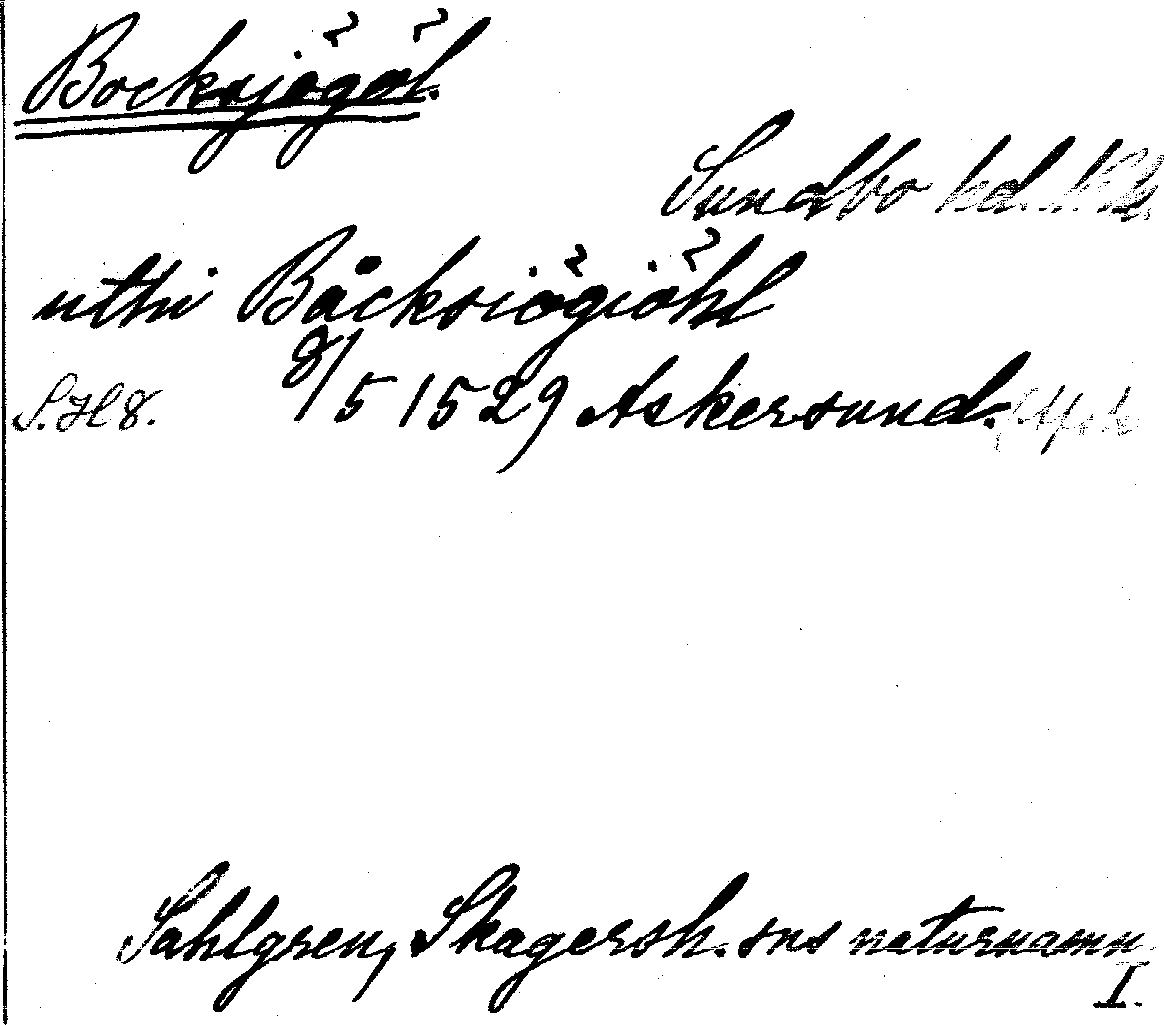 Bocksjögöl.
Sundbo hd.
uthi Båcksiögiöhl
S.H 8. 8/5 1529 Askersund.
Sahlgren, Skagersh. sns naturnamn
I.